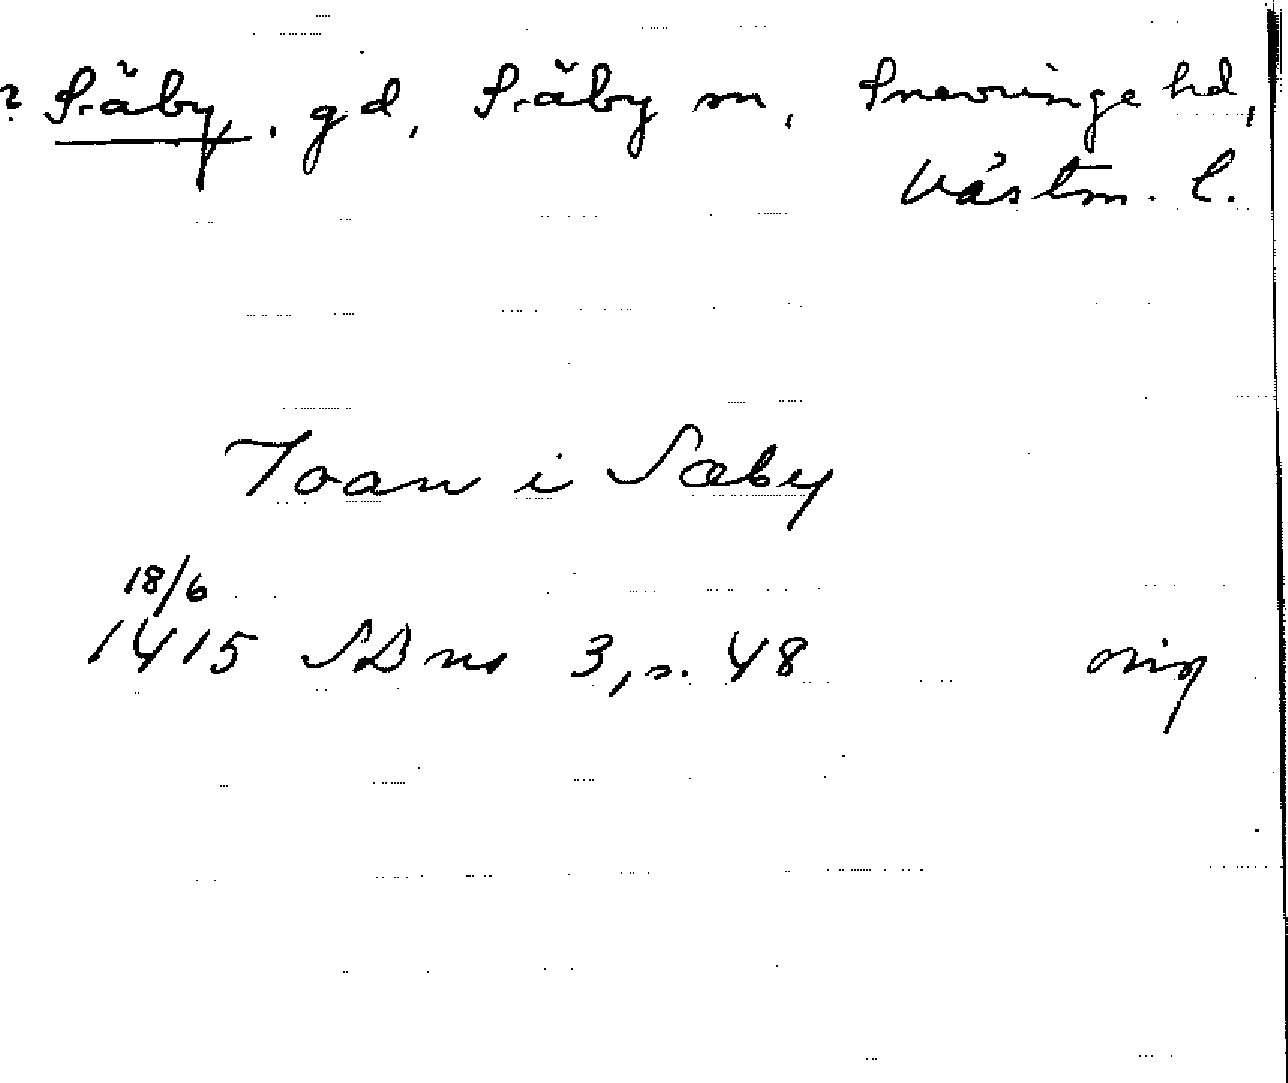 ? Säby, gd, Säby sn, Snevringe hd,
Västm. l.
Joan i Sæby
18/6
1415 SD ns 3, s. 48 orig